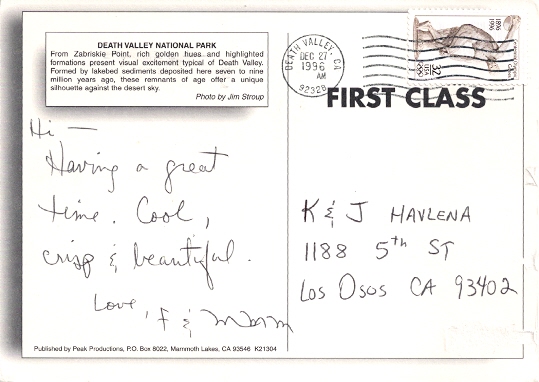 DEATH VALLEY NATIONAL PARK
From Zabriskie Point, rich golden hues and highlighted
formations present visual excitement typical of Death Valley.
Formed by lakebed sediments deposited here seven to nine
million years ago, these remnants of age offer a unique
silhouette against the desert sky.
Photo by Jim Stroup
DEATH VALLEY, CA
DEC 27
1996
AM
92328
1896
1996
USA
32
FIRST CLASS
Hi —
Having a great
time. Cool,
crisp & beautiful.
Love, F &
K & J HAVLENA
1188 5th ST
Los Osos CA 93402
Published by Peak Productions, P.O. Box 8022, Mammoth Lakes, CA 93546 K21304